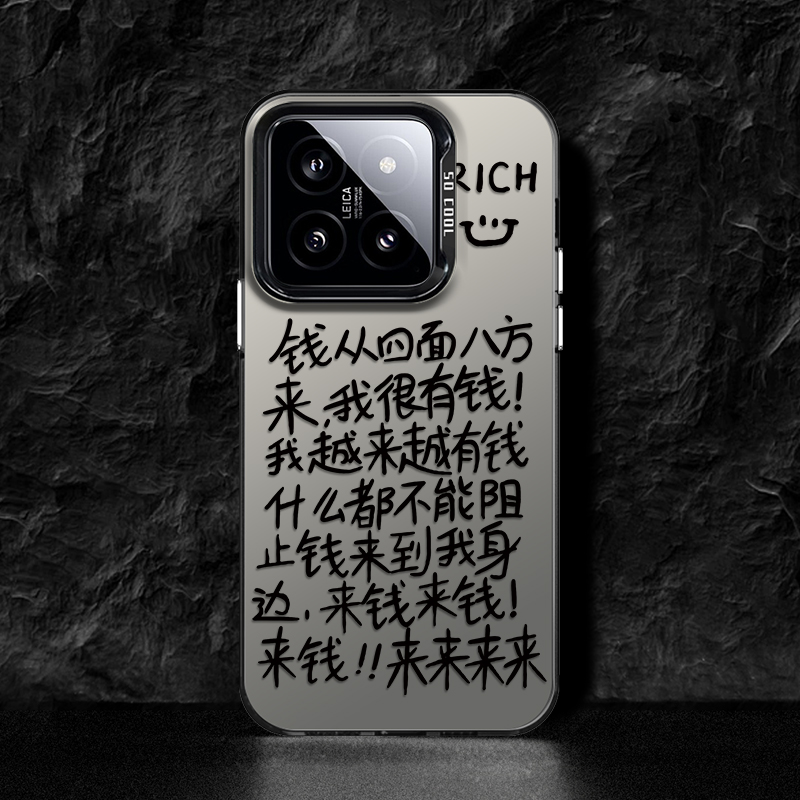 RICH
SO COOL
LEICA
钱从四面八方
来,我很有钱!
我越来越有钱
什么都不能阻
止钱来到我身
边,来钱来钱!
来钱!!来来来来